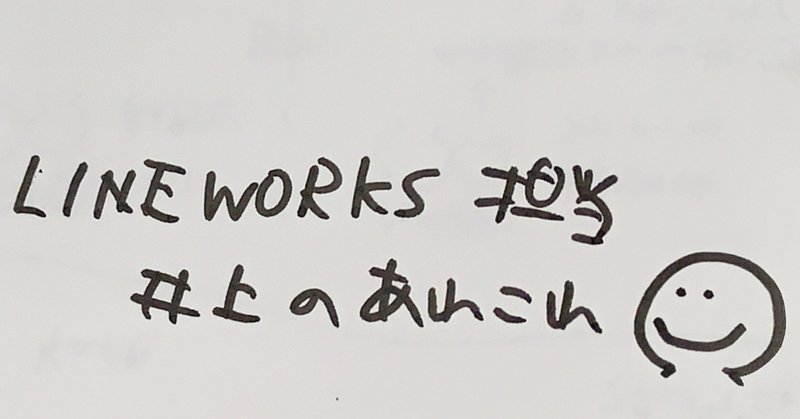 LINE WORKS 担当
井上のあれこれ